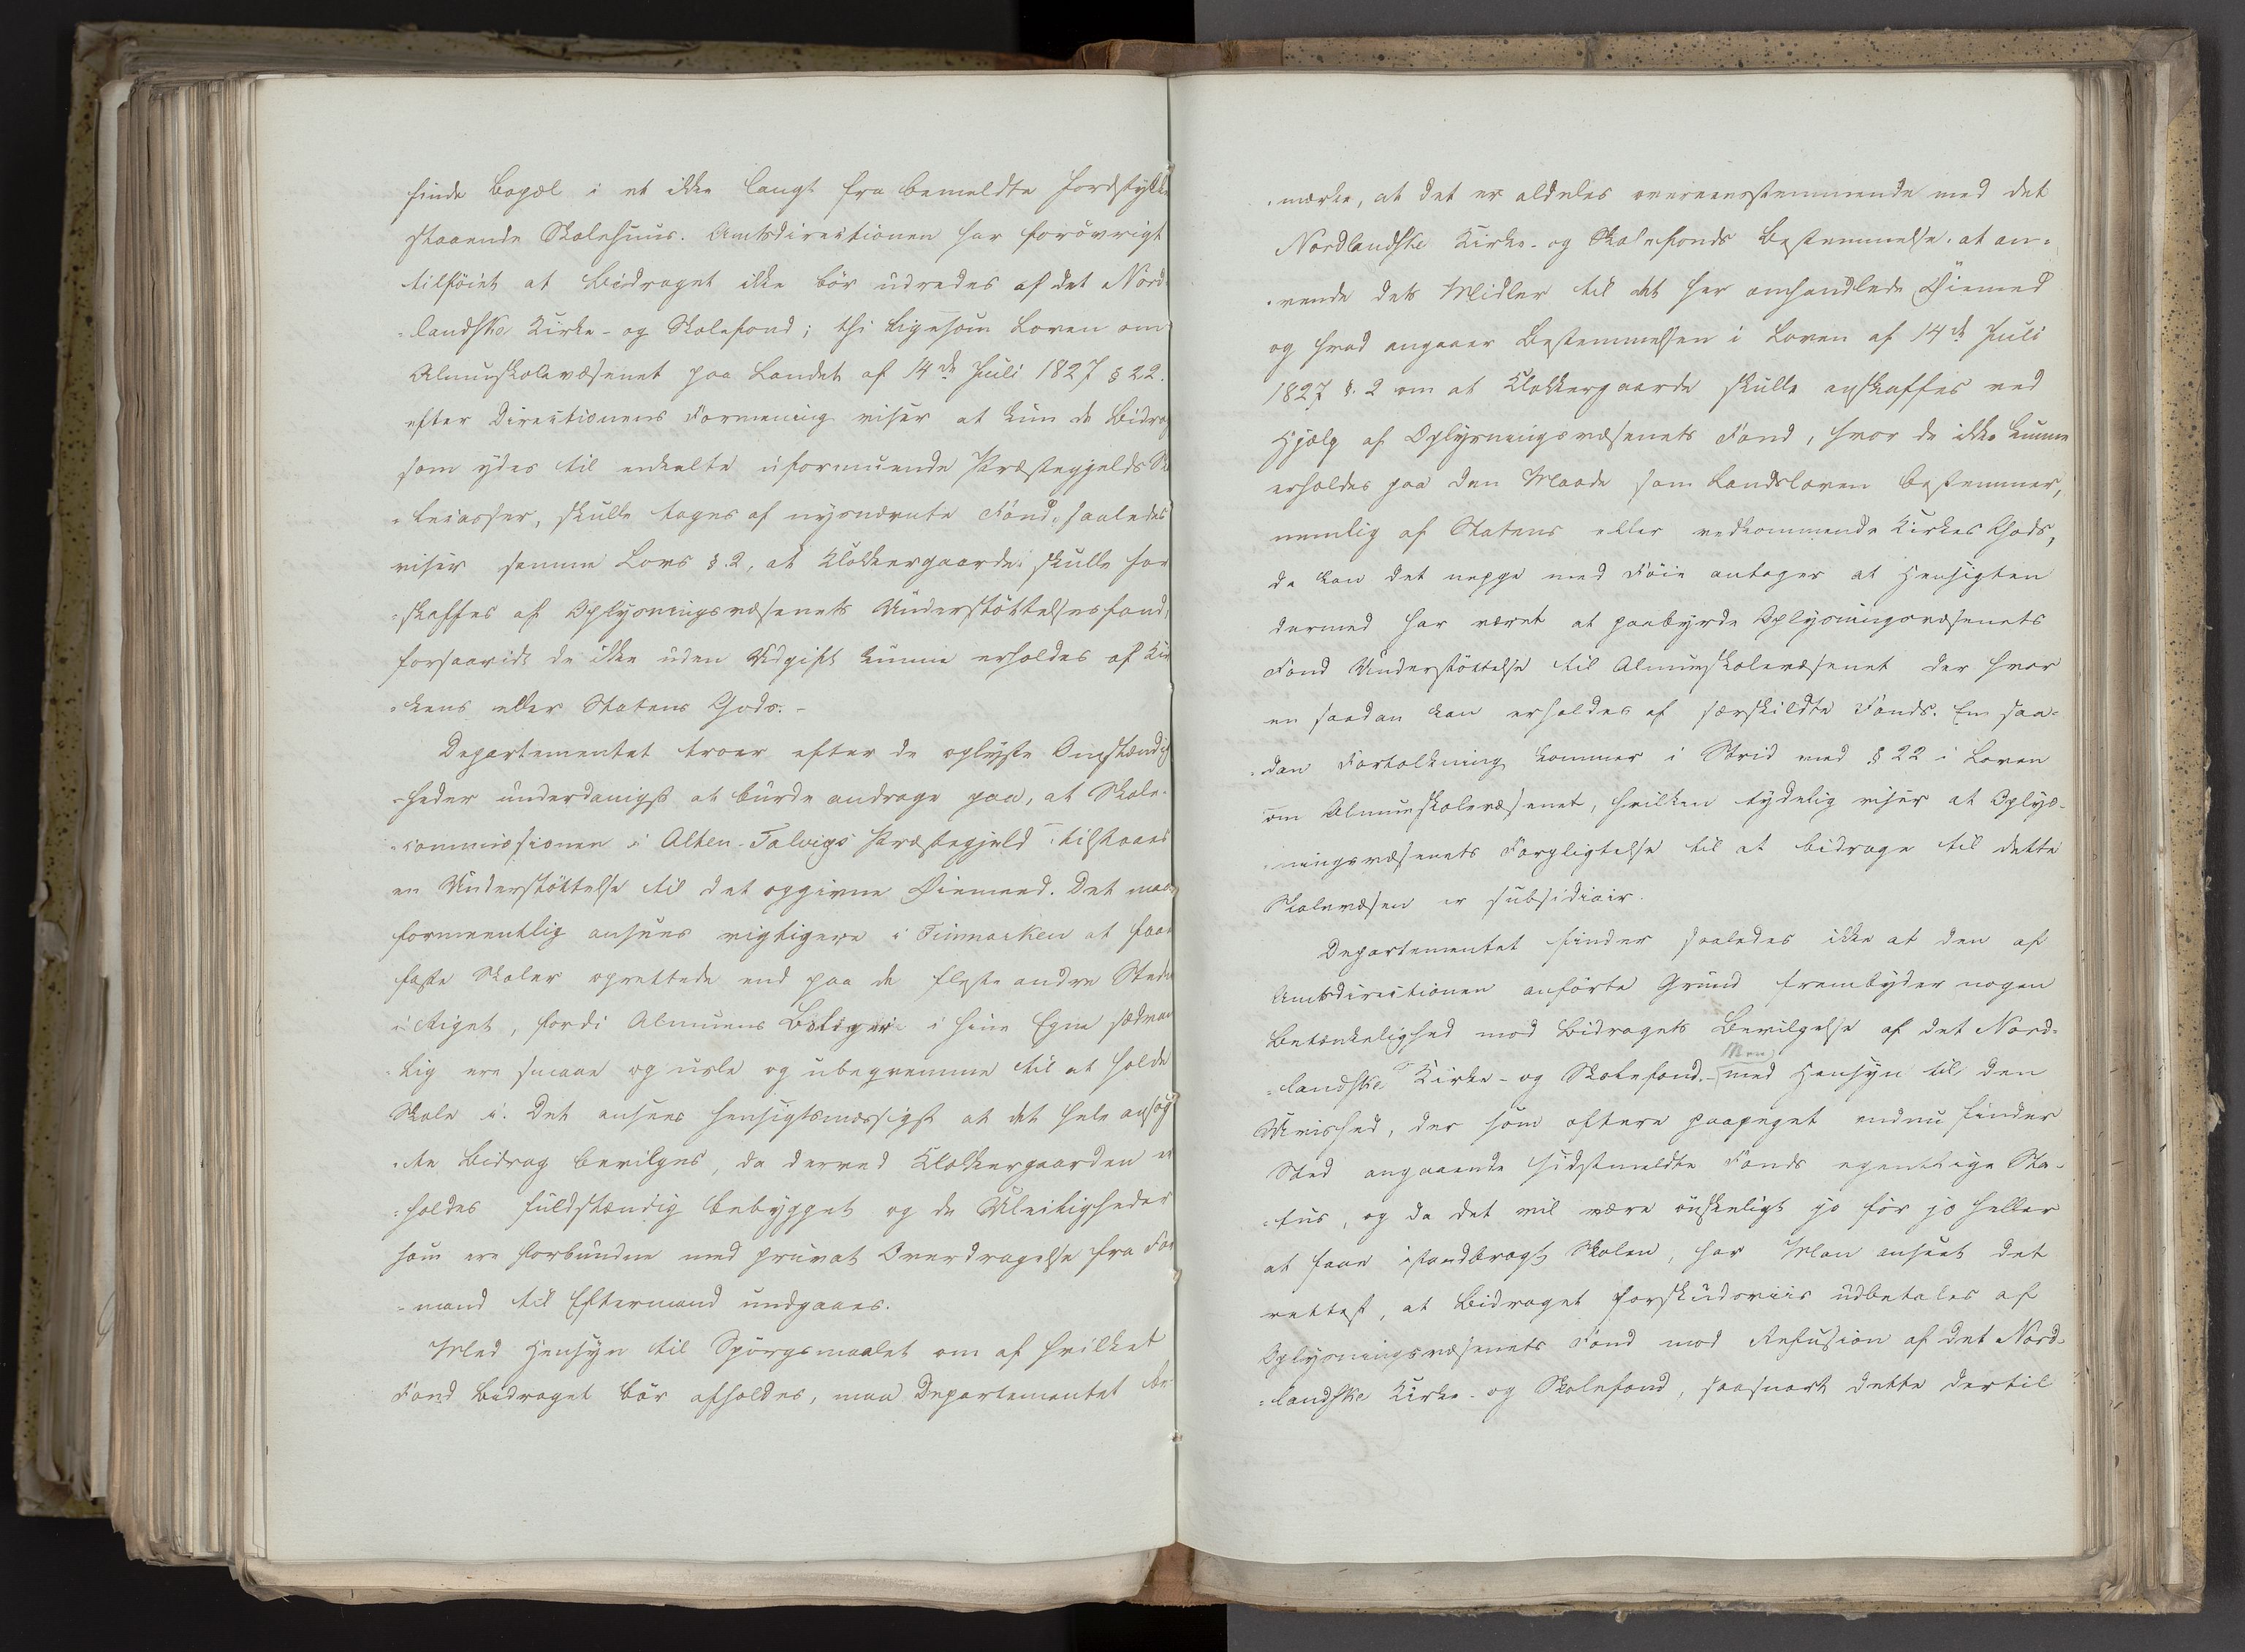 finde Bopæl i et ikke langt fra bemeldte Jordstykke
staaende Skolehuus. Amtsdirectionen har forøvrigt
tilføiet at Bidraget ikke bør udredes af det Nord-
-landske Kirke- og Skolefond; thi ligesom Loven om
Almuskolevæsenet paa Landet af 14de Juli 1827 § 22.
efter Directionens Formening viser at kun de Bidrag
som ydes til enkelte uformuende Præstegjelds Sko
-lecasser, skulle tages af nysnævnte Fond, saaledes
viser samme Lovs §. 2, at Klokkergaarde skulle for
-skaffes af Oplysningsvæsenets Understøttelsesfond,
forsaavidt de ikke uden Udgift kunne erholdes af Kir
-kens eller Statens Gods. -
Departementet troer efter de oplyste Omstændig
-heder underdanigst at burde andrage paa, at Skole-
-commissionen i Alten-Talvigs Præstegjeld tilstaaes
en Understøttelse til det opgivne Øiemeed. Det maa
formeentlig ansees vigtigere i Finmarken at faae
faste Skoler oprettede end paa de fleste andre Steder
i Riget, fordi Almuens Boliger i hine Egne sædvan
-lig ere smaae og usle og ubeqvemme til at holde
Skole i. Det ansees hensigtsmæssigst at det hele ansøg
-te Bidrag bevilges, da derved Klokkergaarden er
-holdes fuldstændig bebygget og de Uleiligheder
som ere forbundne med privat Overdragelse fra For
-mand til Eftermand undgaaes.
Med Hensyn til Spørgsmaalet om af hvilket
Fond Bidraget bør afholdes, maa Departementet be
-mærke, at det er aldeles overeensstemmende med det
Nordlandske Kirke- og Skolefonds Bestemmelse at an-
-vende dets Midler til det her omhandlede Øiemed
og hvad angaaer Bestemmelsen i Loven af 14de Juli
1827 §. 2 om at Klokkergaarde skulle anskaffes ved
Hjælp af Oplysningsvæsenets Fond, hvor de ikke kunne
erholdes paa den Maade som Landsloven bestemmer,
nemlig af Statens eller vedkommende Kirkes Gods,
da kan det neppe med Føie antages at Hensigten
dermed har været at paabyrde Oplysningsvæsenets
Fond Understøttelse til Almueskolevæsenet der hvor
en saadan kan erholdes af særskildte Fonds. En saa-
-dan Fortolkning kommer i Strid med § 22 i Loven
om Almueskolevæsenet, hvilken tydelig viser at Oplys-
-ningsvæsenets Forpligtelse til at bidrage til dette
Skolevæsen er subsidiair.
Departementet finder saaledes ikke at den af
Amtsdirectionen anførte Grund frembyder nogen
Betænkelighed mod Bidragets Bevilgelse af det Nord-
-landske Kirke- og Skolefond. - Men med Hensyn til den
Uvished, der som oftere paapeget endnu finder
Sted angaaende sidstmeldte Fonds egentlige Sta-
-tus, og da det vil være ønskeligt jo før jo heller
at faae istandbragt Skolen, har Man anseet det
rettest, at Bidraget forskudsviis udbetales af
Oplysningsvæsenets Fond mod Refusion af det Nord-
-landske Kirke- og Skolefond, saasnart dette dertil